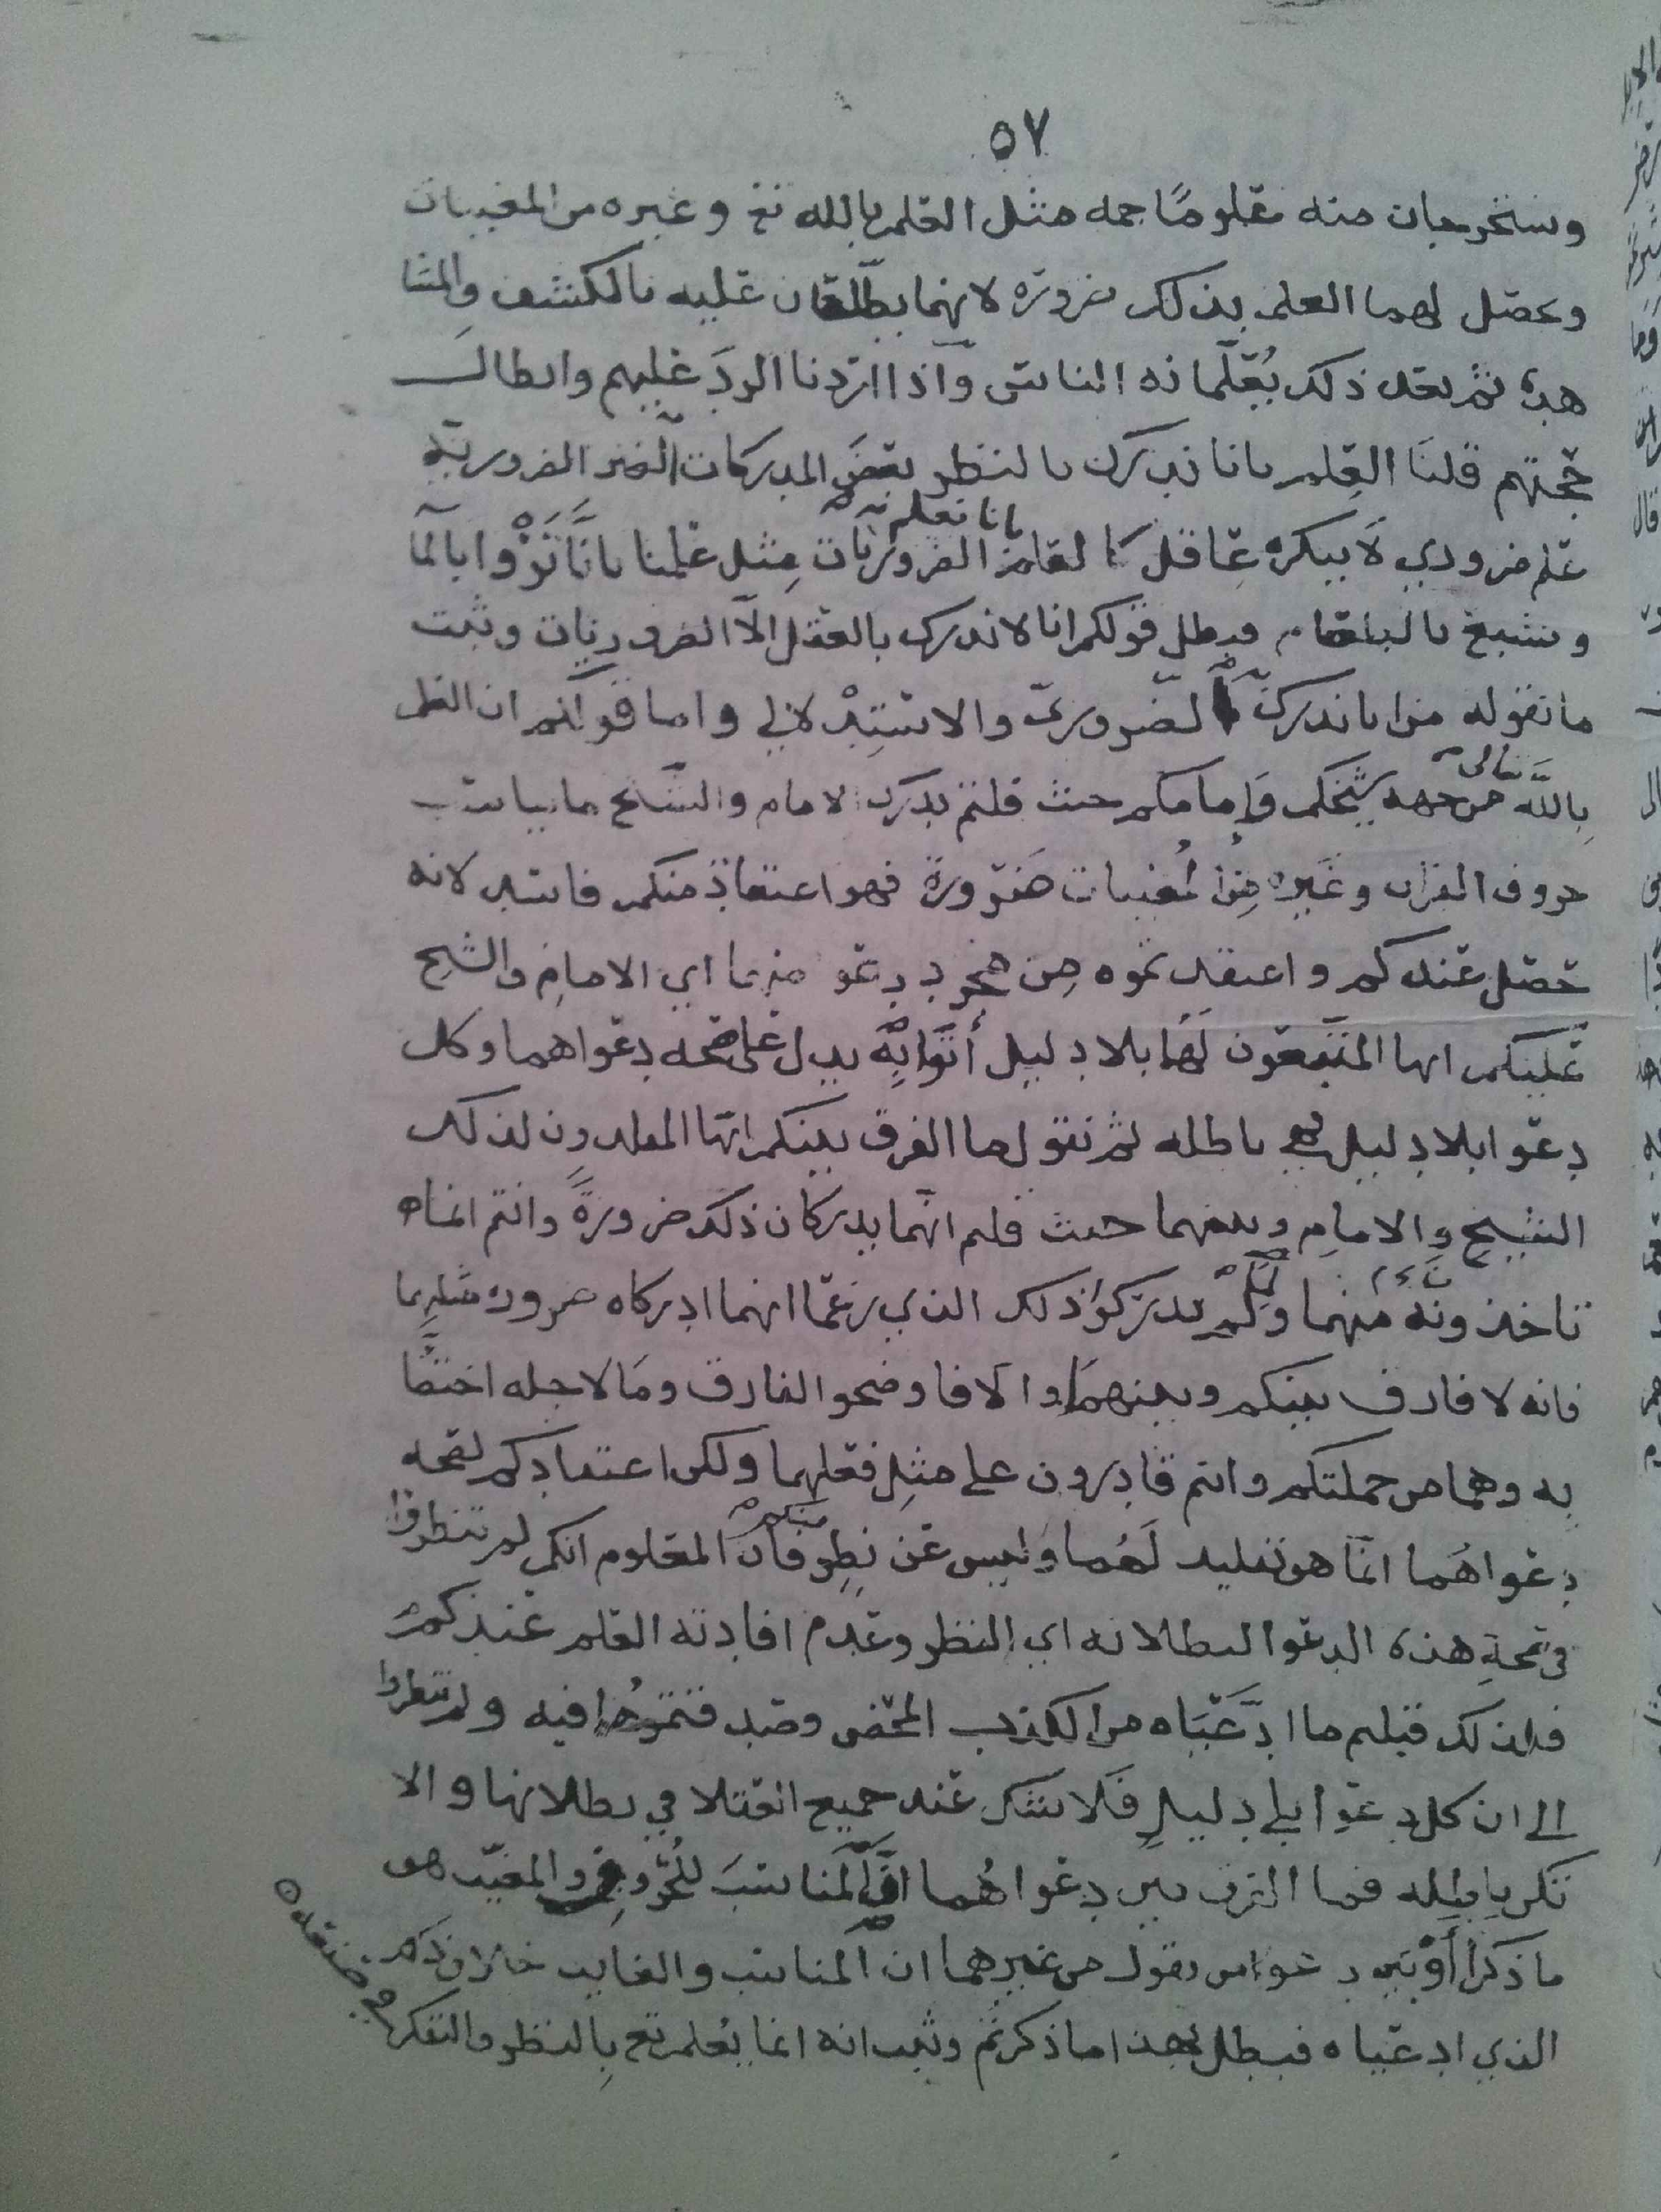 ٥٧
ويستخرجان منه معلومًا جمه مثل العلم بالله تع وغيره من المغيبات
ويحصل لهما العلم بذلك ضرورة لانهما يطّلعان عليه بالكشف والمشا
هدة ثم بعد ذلك يُعَلّمانه الناس وآذا اردنا الردَ عليهم وابطال
حجتهم قلنا العِلم بانا ندرك بالنظر بعضَ المدركات الغير الضروريّة
علم ضروري لا ينكره عاقل كالعلم الضروريات مثل علمنا بانَّا نَرْوا بالما
بانا نعلم
ونشبع بالطعام فبطل قولكم انا لا ندرك بالعقل الّا الضروريات وثبت
ما نقوله من انا ندرك الضروريّ والاستِدْلالي واما قولكم ان العلم
بِاللَّه تعالى من جهه شيخكم وَإمامكم حيث قلتم يدرك الامام والشيخ ما يناسب
حروف القران وغيره مِن المُغيبات ضرورة فهو اعتقادٌ منكم فاسد لانه
حصل عندكم واعتقدتموه مِن مجرد دعو منهما اي الامامِ والشيخ
عليكم ايها المتّبعون لَهُما بلا دليل أتَوا بِه يدل على صحه دعواهما وكل
دعوا بلا دليل فهي باطله ثم نقول ما الفرق بينكم ايّها المقلدون لذلك
الشيخِ والامامِ وبينهما حيث قلتم انّهما يدركان ذلك ضرورةً وانتم انما
تاخذونه منهما ولِمَ لَمْ تدركوا ذلك الذي زعمَا انهما ادركاه ضروره مثلهما
فانه لا فارق بينكم وبينهمَا والّا فاوضحوا الفارق ومَا لاجله اختصَّا
به وهما من جملتكم وانتم قادرون على مثلِ فعلهما ولكن اعتقادكم لصحه
دعواهُما انّما هو تقليد لَهُما وليس عن نظرٍ منكم فان المعلوم انكم لم تنظروا
في صحةِ هذه الدعوا لبطلانه اي النظر وعدم افادته العلم عندكم
فلذلك قبلتم ما ادَّعَيَاه من الكذب المحض وقد فيه ولم تنظروا
الى ان كل دعوا بلى دليلٍ فلا شك عند جميع العقلا في بطلانها والا
تكن باطله فما الفرق بين دعواهُما انَّ المَناسبَ للحُروف والمغيّب هو
ما ذكرا أوْ بَين دعوا من يقول من غيرهما ان المناسب والغايب خلاف ذكر
الذي ادعياه فبطل بهذا ما ذكرتم وثبت انه انما يُعلم تع بِالنظر والتفكر
في صنعه